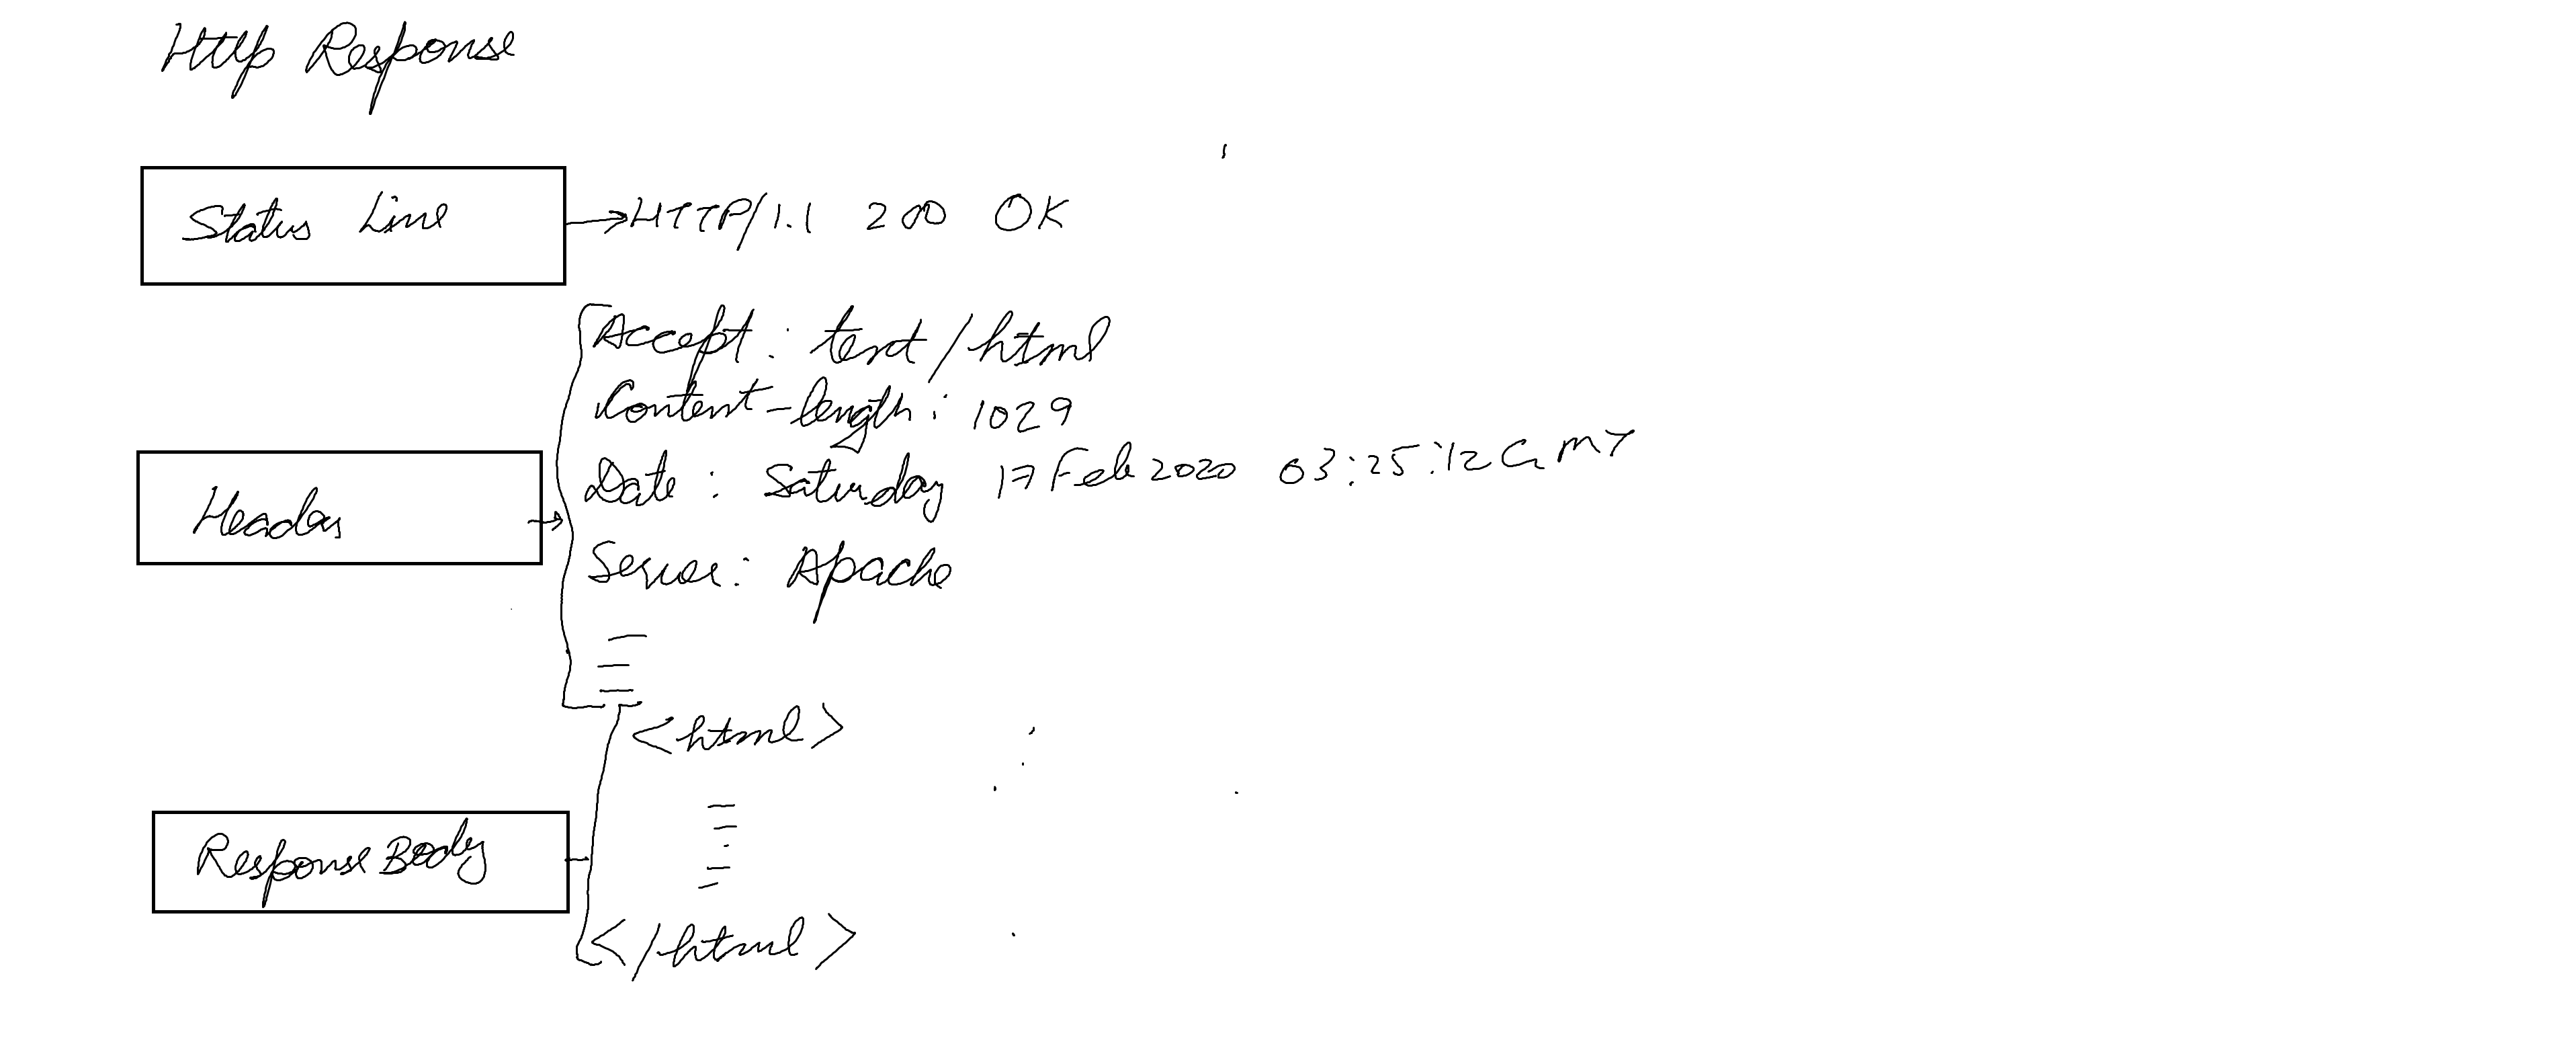 Http Response
Status Line
HTTP/1.1 200 OK
Accept: text/html
Content-length: 1029
Date: Saturday 17 Feb 2020 03:25:12 GMT
Headers
Server: Apache
<html>
Response Body
</html>